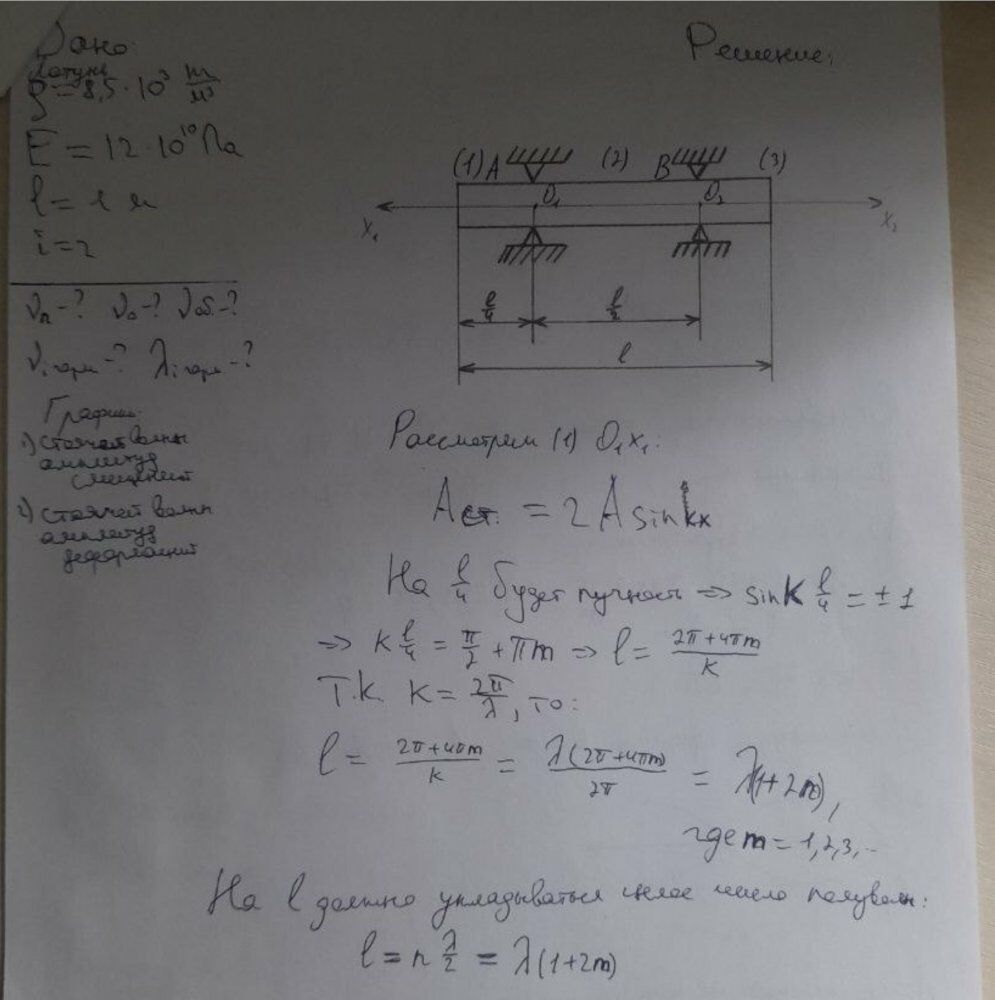 Дано:
Латунь
ρ = 8,5·10³ кг/м³
E = 12·10¹⁰ Па
l = 1 м
i = 2
νₙ-? ν₀-? νоб.-?
νᵢ гарм-? λᵢ гарм-?
Графики:
1) стоячей волны
амплитуд
смещений
2) стоячей волны
амплитуд
деформаций
Решение:
(1) A (2) B (3)
O₁ O₂
X₁ X₂
l/4 l/2
l
Рассмотрим (1) O₁x₁:
Aст. = 2A sin kx
На l/4 будет пучность => sin k l/4 = ±1
=> k l/4 = π/2 + πm => l = (2π+4πm)/k
Т.к. k = 2π/λ, то:
l = (2π+4πm)/k = λ(2π+4πm)/2π = λ(1+2m),
где m = 1,2,3,..
На l должно укладываться целое число полуволн:
l = n λ/2 = λ(1+2m)